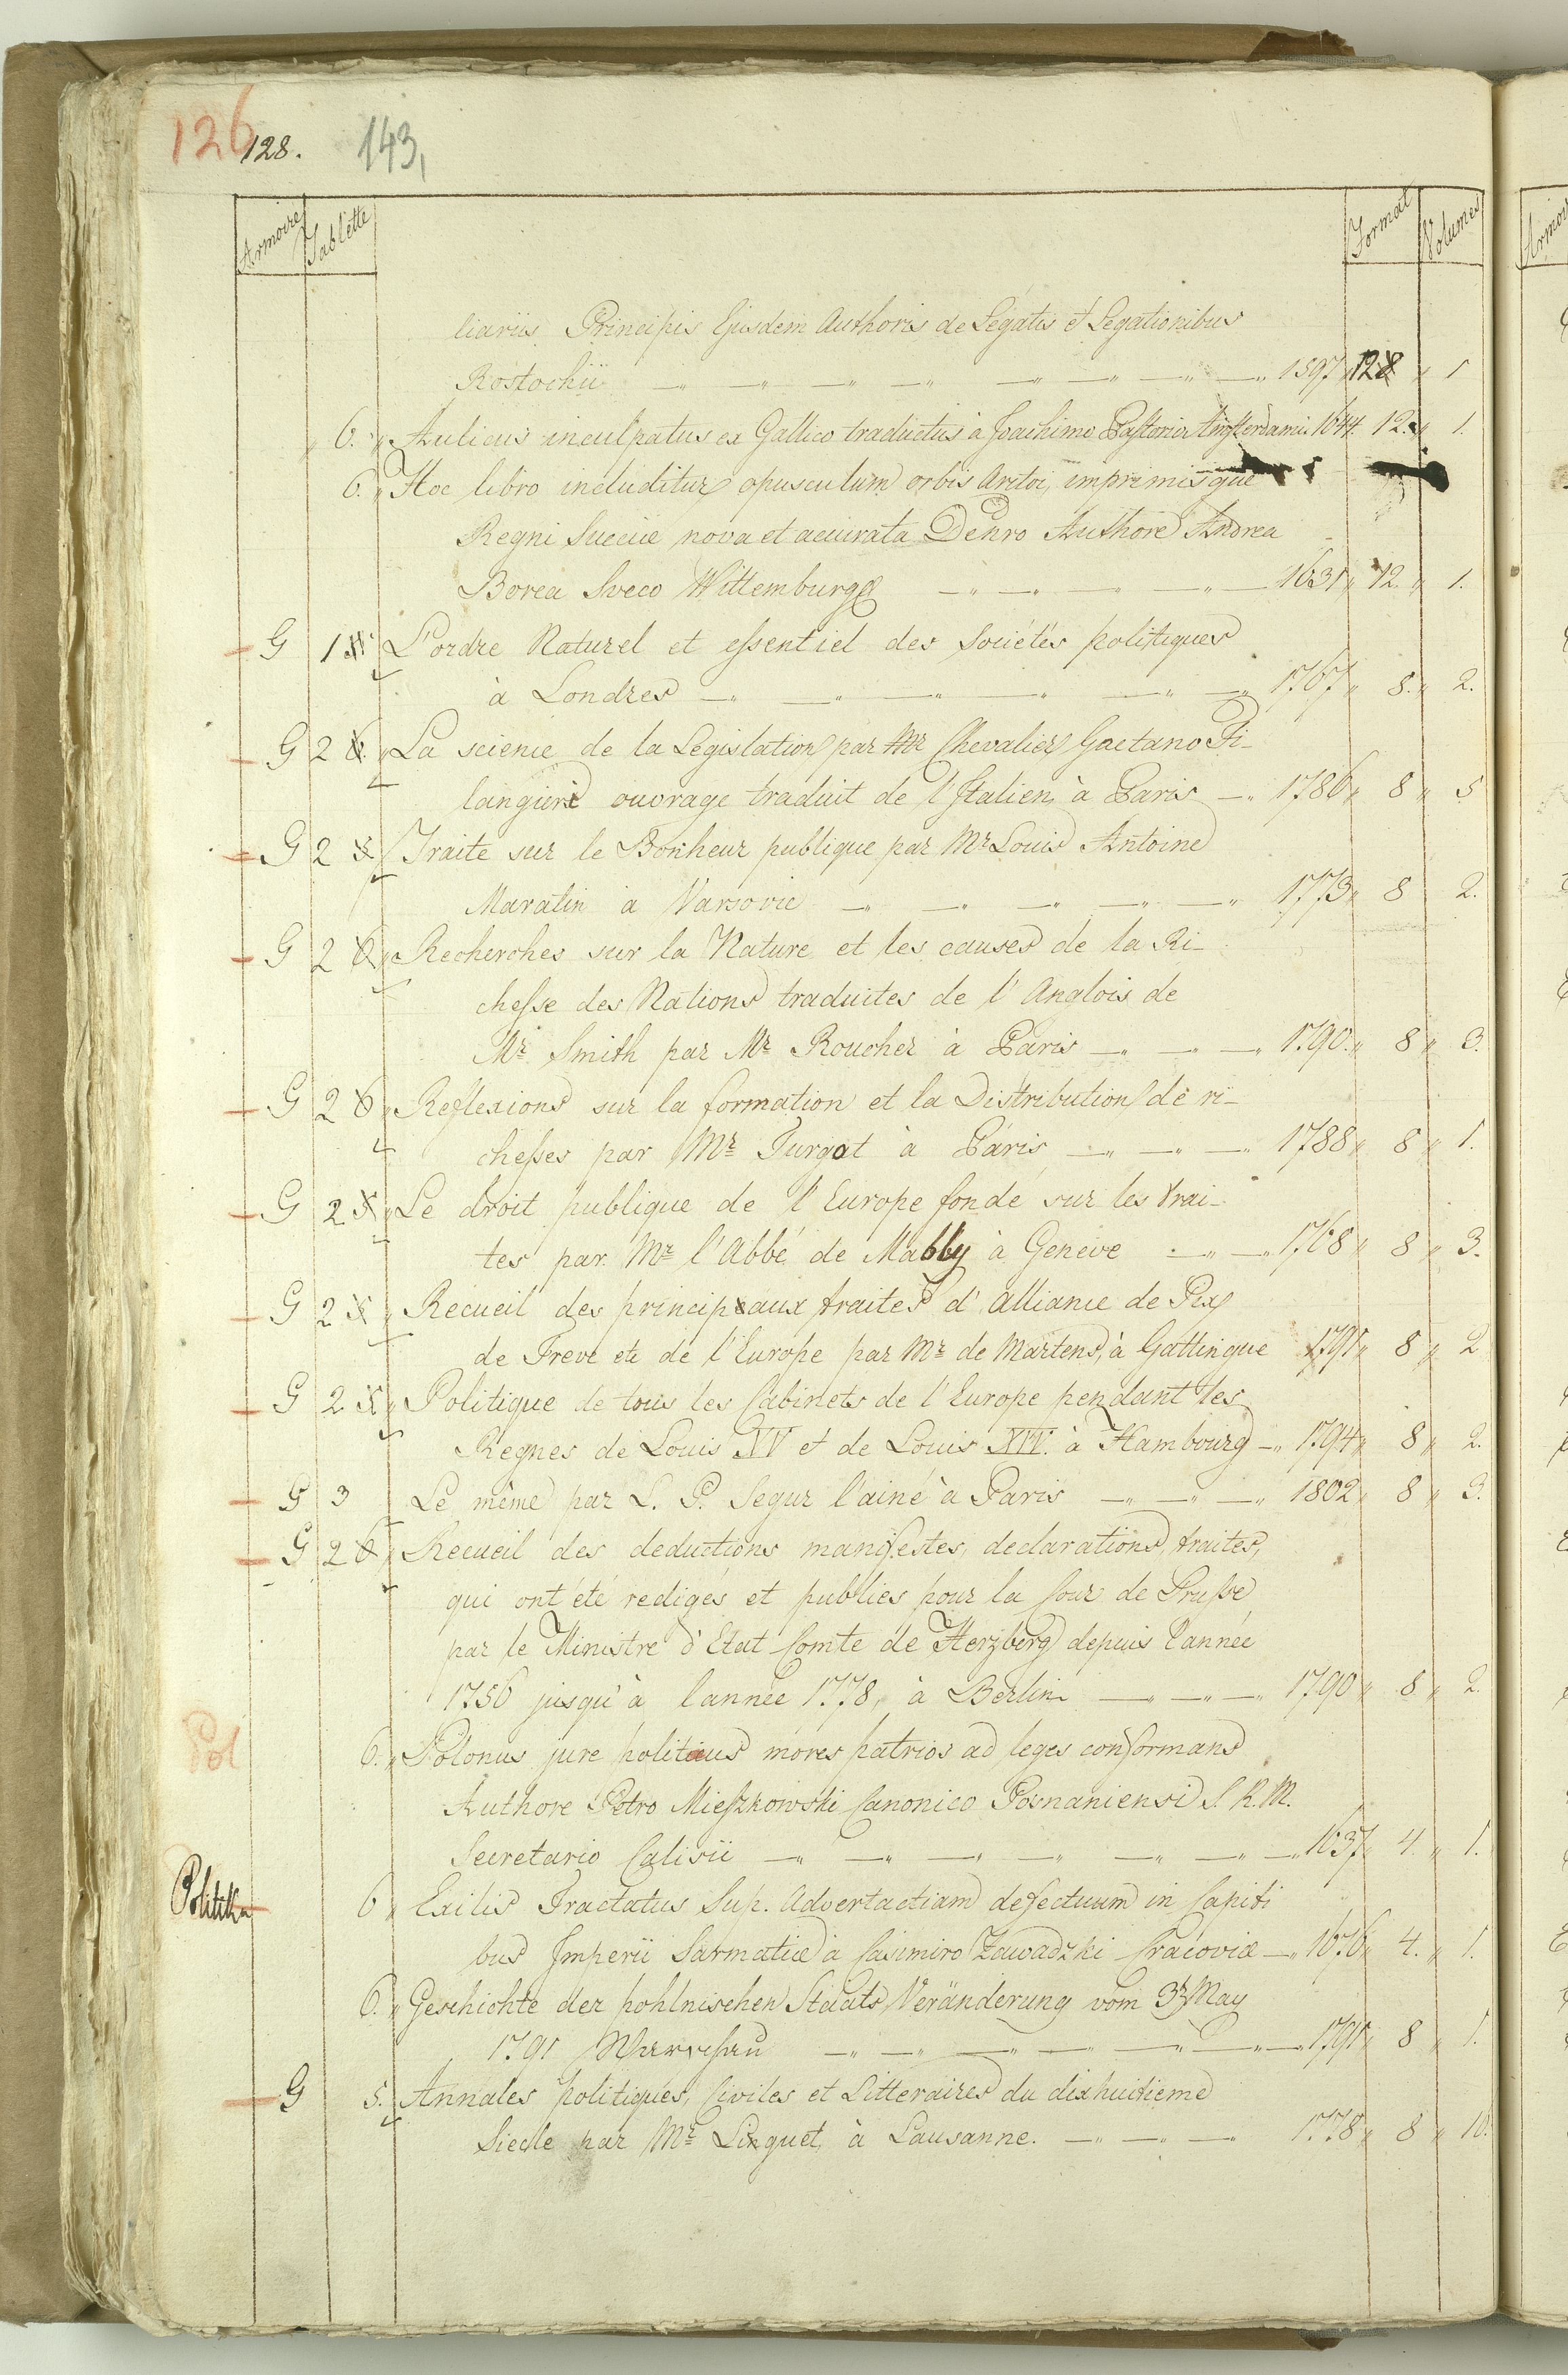 126 128. 143,
Armoire Tablette Format Volumes
liariis Principis Ejusdem Authoris de Legatis et Legationibus
Rostochii 1597 12 1
6. Aulicus inculpatus ex Gallico traductus à Joachimo Pastorio Amsterdami 1644. 12. 1.
6. Hoc libro includitur opusculum orbis Arctoi, imprimisque
Regni Sueciæ nova et accurata Authore Andrea
Borea Sveco Wittemburgæ 1631 12. 1.
G 1 L'ordre Naturel et essentiel des Sociétés politiques
à Londres 1767 8. 2.
G 2 6. La science de la Legislation par Mr Chevalier Gaetano Fi-
langieri ouvrage traduit de l'Italien à Paris 1786 8 5
G 2 5 Traite sur le Bonheur publique par Mr Louis Antoine
Maratin a Varsovie 1773 8 2.
G 2 6 Recherches sur la Nature et les causes de la Ri-
chesse des Nations traduites de l'Anglois de
Mr Smith par Mr Roucher à Paris 1790. 8 3.
G 2 6 Reflexions sur la formation et la Distribution de ri-
chesses par Mr Turgot à Paris 1788 8 1.
G 2 5 Le droit publique de l'Europe fondé sur les trai-
tes par Mr l'Abbé de Mably à Geneve 1768 8 3.
G 2 5 Recueil des principaux traites d'alliance de Pax
de Treve etc de l'Europe par Mr de Martens, à Gattingue 1791 8 2
G 2 5 Politique de tous les Cabinets de l'Europe pendant les
Regnes de Louis XV et de Louis XIV. à Hambourg 1794 8 2.
G 3 Le même par L. P. Segur l'ainé à Paris 1802 8 3.
G 2 6 Recueil des deductions manifestes, declarations, traites,
qui ont été redigés et publiés pour la Cour de Prusse
par le Ministre d'Etat Comte de Herzberg depuis l'année
1756 jusqu'à l'année 1778, à Berlin 1790 8 2.
Pol 6. Polonus jure politicus mores patrios ad leges conformans
Authore Petro Mieszkowski Canonico Posnaniensi S. R. M.
Secretario Calisii 1637 4. 1.
Politika 6 Exilis Tractatus Sup. defectuum in Capiti
bus Imperii Sarmatiæ à Casimiro Zawadzki Cracoviæ 1676 4. 1.
6. Geschichte der pohlnischen Staats Veränderung vom 3r May
1791 Warschau 1791 8 1.
G 5. Annales politiques, Civiles et Litteraires du dixhuitieme
Siecle par Mr Linguet à Lausanne. 1778 8 10.